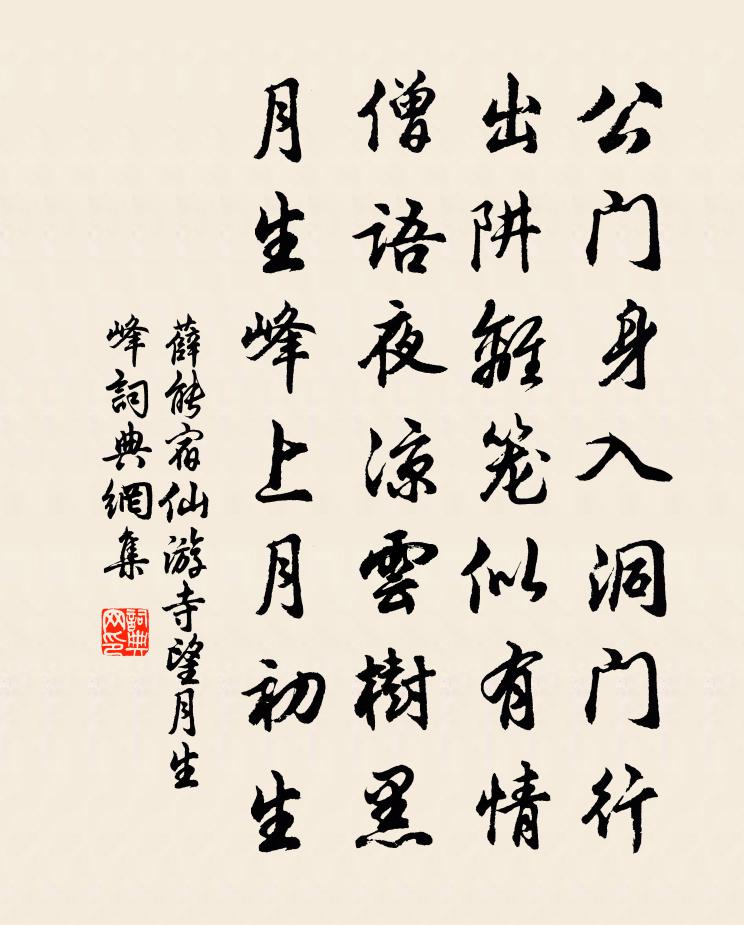 公门身入洞门行
出阱離笼似有情
僧語夜凉雲樹黑
月生峰上月初生
薛能宿仙游寺望月生
峰詞典網集
詞典
网印